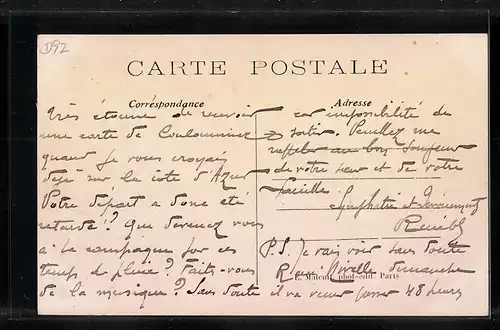 D92
CARTE POSTALE
Correspondance
Adresse
Très étonné de recevoir
une carte de Coulommiers
quand je vous croyais
déjà sur la côte d'Azur
Votre départ a donc été
retardé ? Que devenez vous
à la campagne par ce
temps de pluie ? Faites-vous
de la musique ? Sans doute
car impossibilité de
sortir. Veuillez me
rappeler au bon
de votre sœur et de votre
famille
René
P.S. Je vais voir sans doute
dimanche
il va venir passer 48 heures
phot-édit. Paris